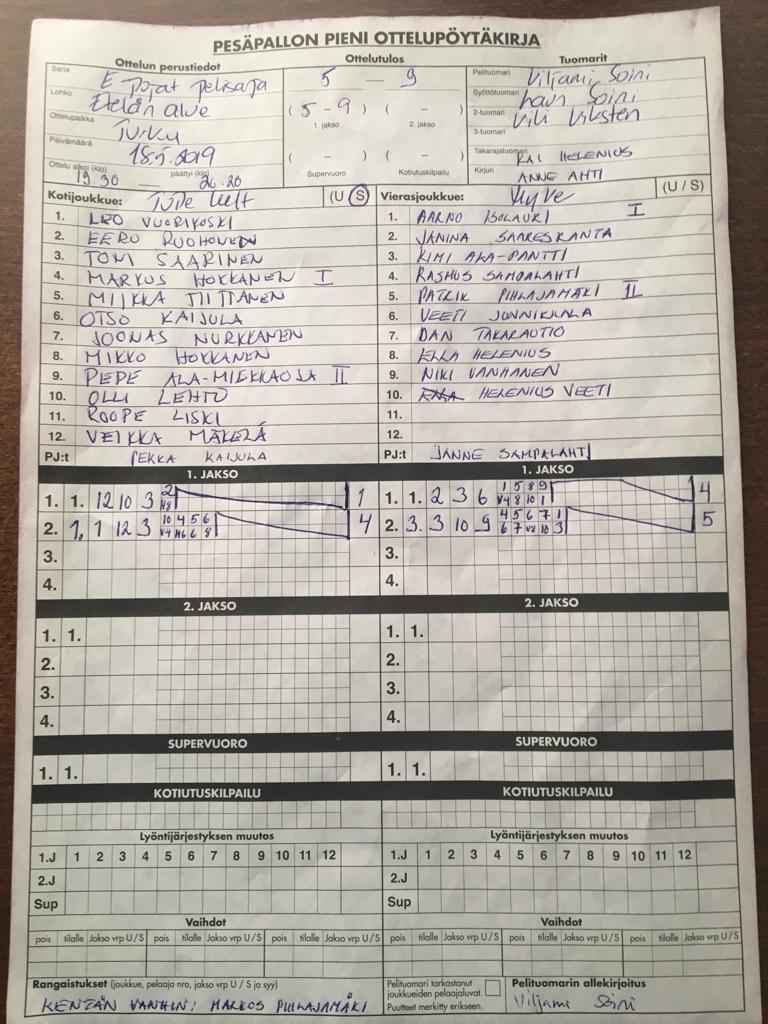 PESÄPALLON PIENI OTTELUPÖYTÄKIRJA
Ottelun perustiedot
Sarja E pojat pelisarja
Lohko Etelän alue
Ottelupaikka Turku
Päivämäärä 18.5.2019
Ottelu alkoi (klo) 19.30 päättyi (klo) 20.20
Ottelutulos
5 – 9
( 5 – 9 ) ( – )
1. jakso 2. jakso
( – ) ( – )
Supervuoro Kotiutuskilpailu
Tuomarit
Pelituomari Viljami Soini
Syöttötuomari Lauri Soini
2-tuomari Vili Viksten
3-tuomari
Takarajatuomari KAI HELENIUS
Kirjuri ANNE AHTI
Kotijoukkue: (U / S)
1. LEO VUORIKOSKI
2. EERO RUOHONEN
3. TOMI SAARINEN
4. MARKUS HOKKANEN I
5. MIIKKA TIITTANEN
6. OTSO KAIJULA
7. JOONAS NURKKANEN
8. MIKKO HOKKANEN
9. PEPE ALA-MIEKKAOJA II
10. OLLI LEHTO
11. ROOPE LISKI
12. VEIKKA MÄKELÄ
PJ:t PEKKA KAIJULA
Vierasjoukkue: Hyve (U / S)
1. AARNO ISOLAURI I
2. JANINA SAARESRANTA
3. KIMI ALA-PANTTI
4. RASMUS SAMPALAHTI
5. PATRIK PIHLAJAMÄKI II
6. VEETI JUNNIKKALA
7. DAN TAKARAUTIO
8. ELLA HELENIUS
9. NIKI VANHANEN
10. HELENIUS VEETI
11.
12.
PJ:t JANNE SAMPALAHTI
1. JAKSO
1. 1. 12 10 3 2 1
2. 1. 1 12 3 10 4 5 6 4
3.
4.
1. JAKSO
1. 1. 2 3 6 1 5 8 9 4
V4 8 10 1
2. 3. 3 10 9 4 5 6 7 1 5
6 7 V2 10 3
3.
4.
2. JAKSO
1. 1.
2.
3.
4.
2. JAKSO
1. 1.
2.
3.
4.
SUPERVUORO
1. 1.
SUPERVUORO
1. 1.
KOTIUTUSKILPAILU
KOTIUTUSKILPAILU
Lyöntijärjestyksen muutos
1.J 1 2 3 4 5 6 7 8 9 10 11 12
2.J
Sup
Lyöntijärjestyksen muutos
1.J 1 2 3 4 5 6 7 8 9 10 11 12
2.J
Sup
Vaihdot
pois tilalle Jakso vrp U / S pois tilalle Jakso vrp U / S pois tilalle Jakso vrp U / S
Vaihdot
pois tilalle Jakso vrp U / S pois tilalle Jakso vrp U / S pois tilalle Jakso vrp U / S
Rangaistukset (joukkue, pelaaja nro, jakso vrp U / S ja syy)
KENTÄN VANHIN: MARKOS PIHLAJAMÄKI
Pelituomari tarkastanut
joukkueiden pelaajaluvat.
Puutteet merkitty erikseen.
Pelituomarin allekirjoitus
Viljami Soini